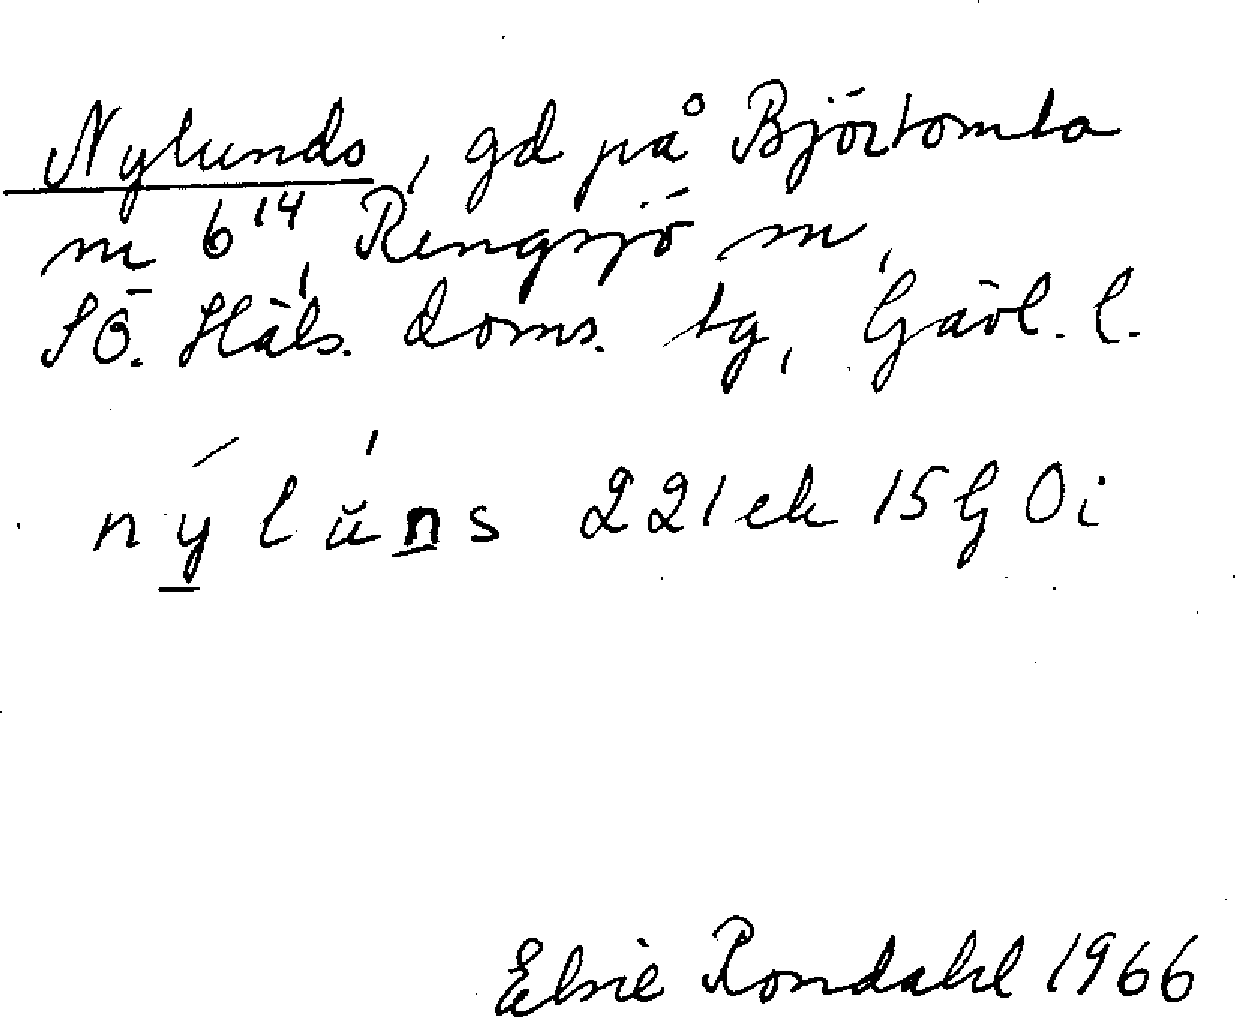 Nylunds, gd på Björtomta
m 6¹⁴, Rengsjö sn,
SÖ. Häls. doms. tg, Gävl. l.
nýlúns 221 ek 15G Oi
Elsie Rondahl 1966